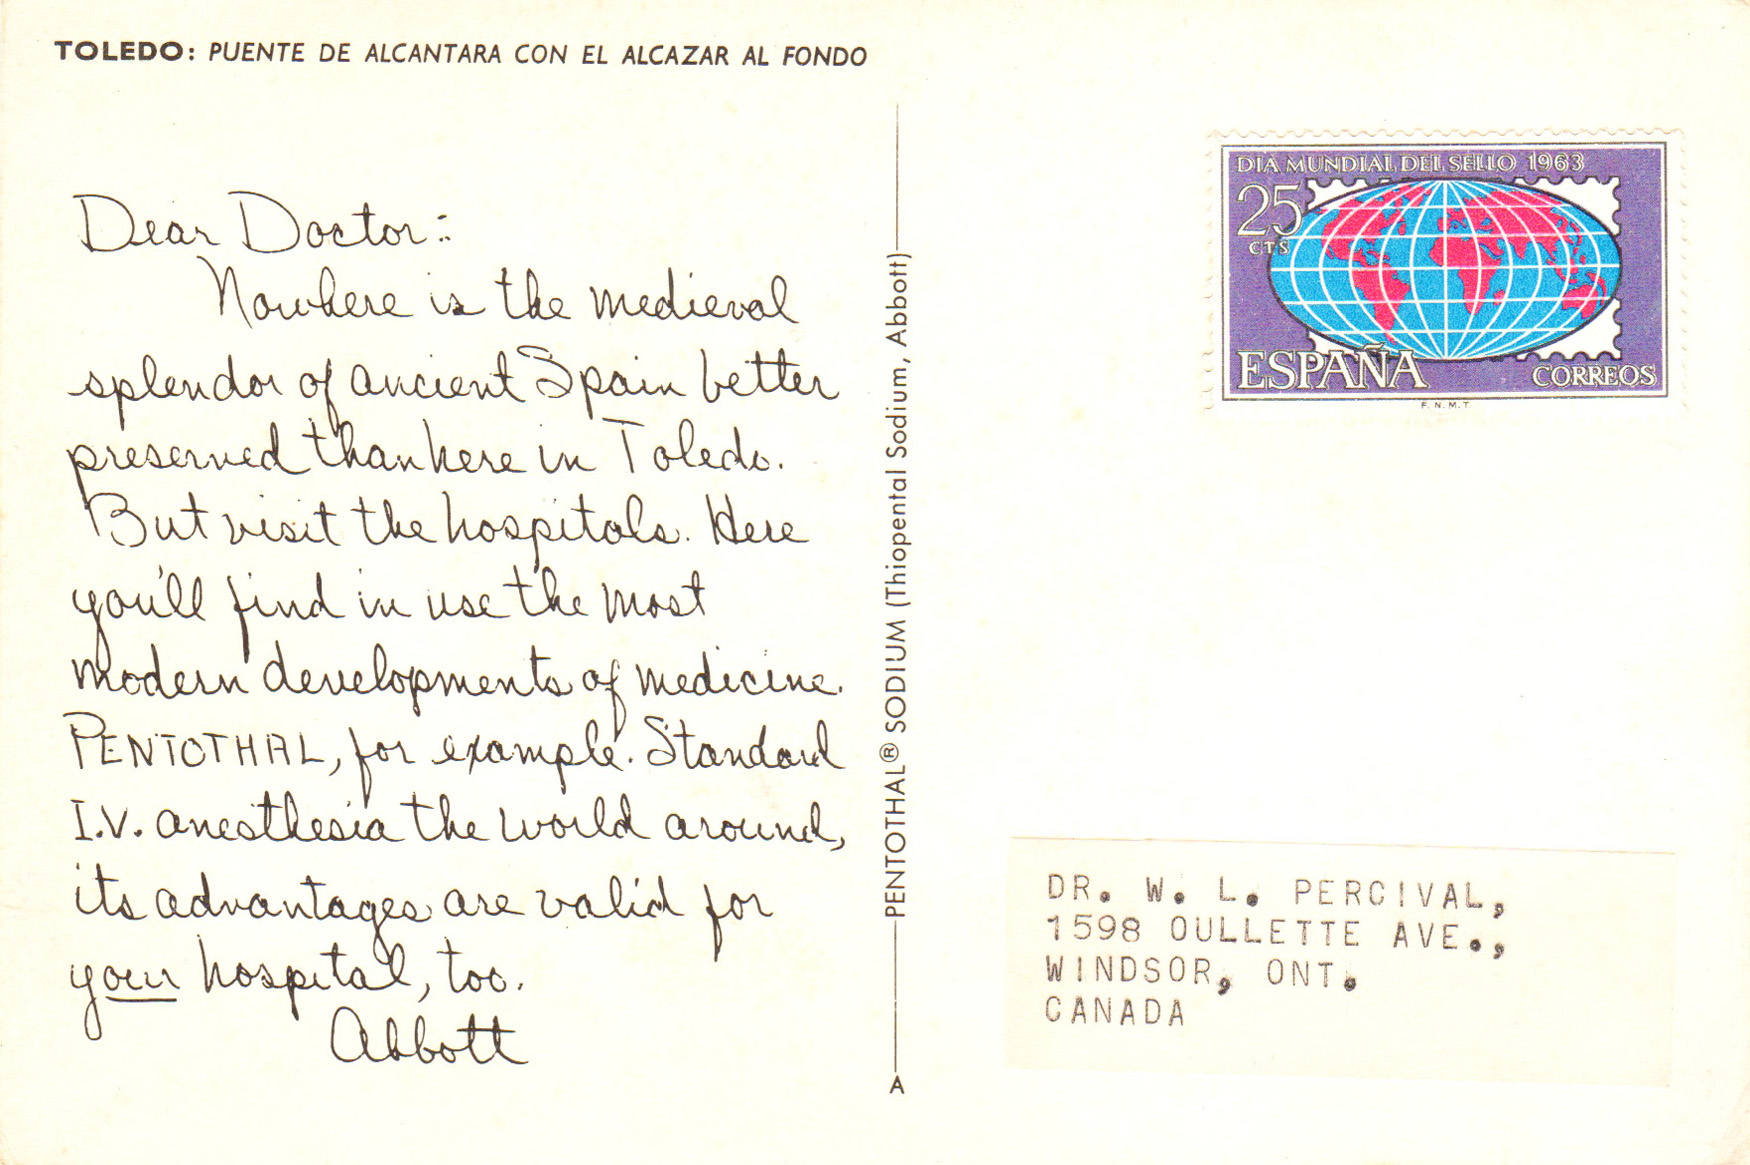 TOLEDO: PUENTE DE ALCANTARA CON EL ALCAZAR AL FONDO
Dear Doctor:
Nowhere is the medieval
splendor of ancient Spain better
preserved than here in Toledo.
But visit the hospitals. Here
you'll find in use the most
modern developments of medicine.
PENTOTHAL, for example. Standard
I.V. anesthesia the world around,
its advantages are valid for
your hospital, too.
Abbott
PENTOTHAL® SODIUM (Thiopental Sodium, Abbott)
A
DIA MUNDIAL DEL SELLO 1963
25
CTS
ESPAÑA
CORREOS
F.N.M.T.
DR. W. L. PERCIVAL,
1598 OULLETTE AVE.,
WINDSOR, ONT.
CANADA